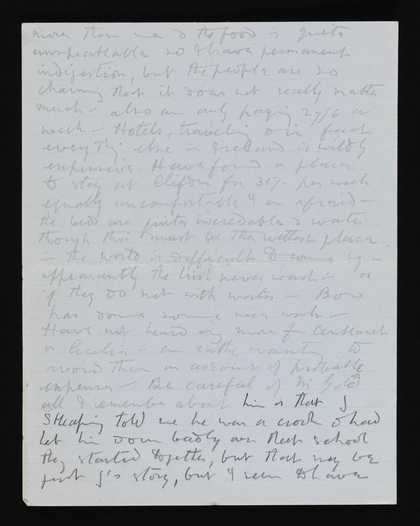 more than me & the food is quite
unspeakable so I have permanent
indigestion, but the people are so
charming that it does not really matter
much – also am only paying 27/6 a
week – Hotels, traveling & in fact
everything else in Ireland is wildly
expensive. Have found a place
to stay at Clifden for 35/- per week
equally uncomfortable I am afraid –
the beds are quite incredible & water
though this must be the wettest place
in the world is difficult to come by –
apparently the Irish never wash – or
if they do not with water – Bow
has done some nice work –
Have not heard any more from
or Cecilia – am rather wanting to
avoid them on account of probable
expenses – Be careful of Mr
all I remember about him is that J
Sheaping told me he was a crook & had
let him down badly over that school
they started together, but that may be
just J's story, but I seem to have